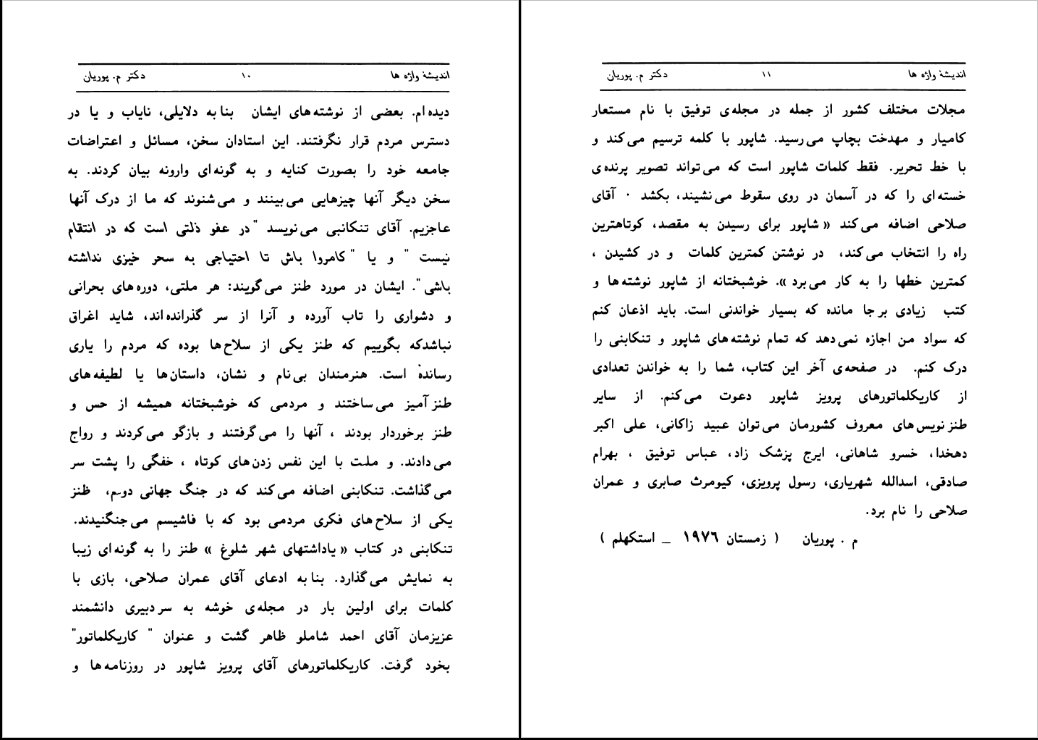 اندیشهٔ واژه ها ۱۰ دکتر م. پوریان
دیده ام. بعضی از نوشته های ایشان بنا به دلایلی، نایاب و یا در
دسترس مردم قرار نگرفتند. این استادان سخن، مسائل و اعتراضات
جامعه خود را بصورت کنایه و به گونه ای وارونه بیان کردند. به
سخن دیگر آنها چیزهایی می بینند و می شنوند که ما از درک آنها
عاجزیم. آقای تنکابنی می نویسد "در عفو ذلتی است که در انتقام
نیست " و یا "کامروا باش تا احتیاجی به سحر خیزی نداشته
باشی". ایشان در مورد طنز می گویند: هر ملتی، دوره های بحرانی
و دشواری را تاب آورده و آنرا از سر گذرانده اند، شاید اغراق
نباشدکه بگوییم که طنز یکی از سلاح ها بوده که مردم را یاری
رسانده است. هنرمندان بی نام و نشان، داستان ها یا لطیفه های
طنز آمیز می ساختند و مردمی که خوشبختانه همیشه از حس و
طنز برخوردار بودند ، آنها را می گرفتند و بازگو می کردند و رواج
می دادند. و ملت با این نفس زدن های کوتاه ، خفگی را پشت سر
می گذاشت. تنکابنی اضافه می کند که در جنگ جهانی دوم، طنز
یکی از سلاح های فکری مردمی بود که با فاشیسم می جنگنیدند.
تنکابنی در کتاب « یاداشتهای شهر شلوغ » طنز را به گونه ای زیبا
به نمایش می گذارد. بنا به ادعای آقای عمران صلاحی، بازی با
کلمات برای اولین بار در مجله ی خوشه به سر دبیری دانشمند
عزیزمان آقای احمد شاملو ظاهر گشت و عنوان " کاریکلماتور"
بخود گرفت. کاریکلماتورهای آقای پرویز شاپور در روزنامه ها و
اندیشهٔ واژه ها ۱۱ دکتر م. پوریان
مجلات مختلف کشور از جمله در مجله ی توفیق با نام مستعار
کامیار و مهدخت بچاپ می رسید. شاپور با کلمه ترسیم می کند و
با خط تحریر. فقط کلمات شاپور است که می تواند تصویر پرنده ی
خسته ای را که در آسمان در روی سقوط می نشیند، بکشد ۰ آقای
صلاحی اضافه می کند « شاپور برای رسیدن به مقصد، کوتاهترین
راه را انتخاب می کند، در نوشتن کمترین کلمات و در کشیدن ،
کمترین خطها را به کار می برد ». خوشبختانه از شاپور نوشته ها و
کتب زیادی بر جا مانده که بسیار خواندنی است. باید اذعان کنم
که سواد من اجازه نمی دهد که تمام نوشته های شاپور و تنکابنی را
درک کنم. در صفحه ی آخر این کتاب، شما را به خواندن تعدادی
از کاریکلماتورهای پرویز شاپور دعوت می کنم. از سایر
طنز نویس های معروف کشورمان می توان عبید زاکانی، علی اکبر
دهخدا، خسرو شاهانی، ایرج پزشک زاد، عباس توفیق ، بهرام
صادقی، اسدالله شهریاری، رسول پرویزی، کیومرث صابری و عمران
صلاحی را نام برد.
م . پوریان ( زمستان ۱۹۷۶ _ استکهلم )